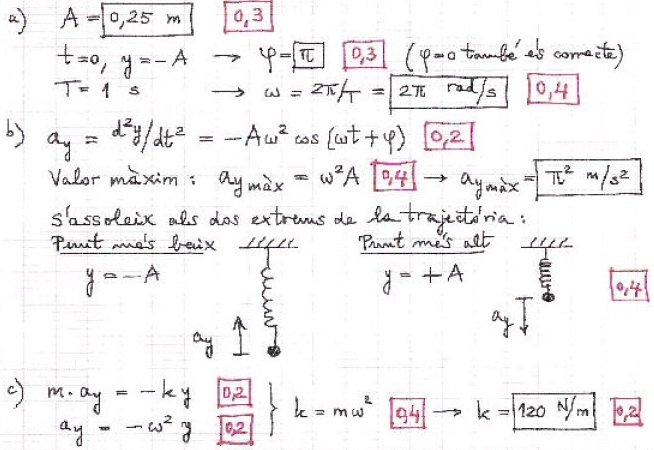 a) A = 0,25 m 0,3
t=0, y=-A → φ = π 0,3 (φ=0 també és correcte)
T = 1 s → ω = 2π/T = 2π rad/s 0,4
b) ay = d²y/dt² = -Aω² cos (ωt + φ) 0,2
Valor màxim: ay màx = ω²A 0,4 → ay màx = π² m/s²
s'assoleix als dos extrems de la trajectòria:
Punt més baix Punt més alt
y = -A y = +A 0,4
ay ay
c) m·ay = -ky 0,2
ay = -ω² y 0,2 } k = mω² 0,4 → k = 120 N/m 0,2